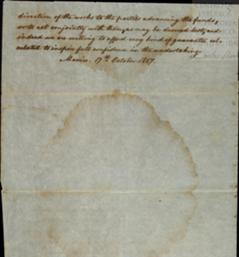 direction of the works to the parties advancing the funds,
to act conjointly with them as may be deemed best, and
indeed we are willing to afford any kind of guarantee cal-
culated to inspire full confidence in the undertaking
Mexico. 17th October 1857.